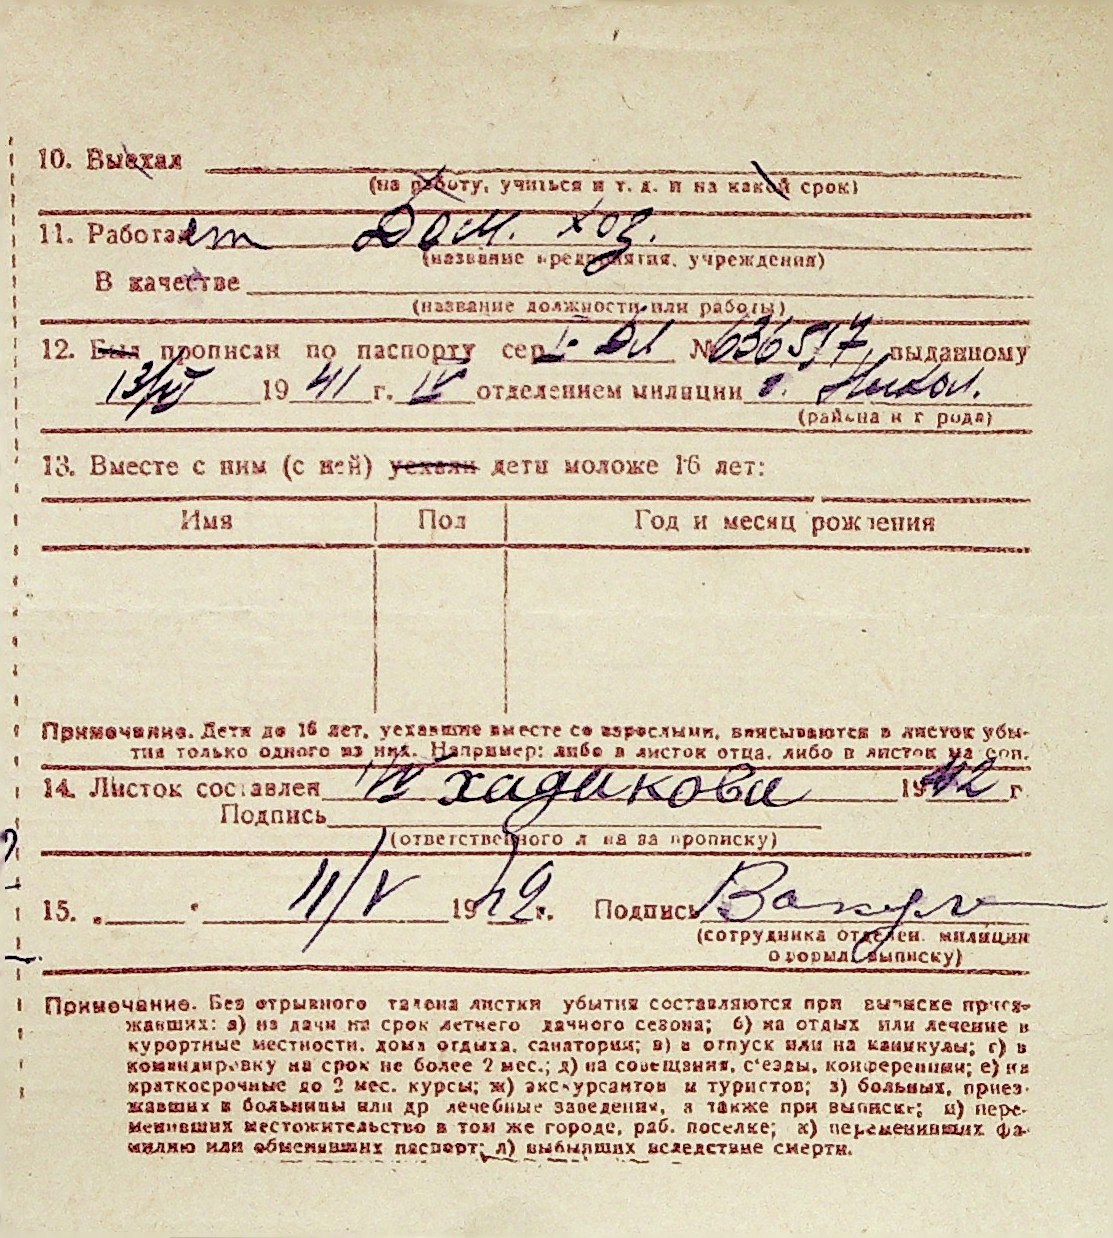 10. Выехал
(на работу, учиться и т. д. и на какой срок)
11. Работает Дом. хоз.
(название предприятия, учреждения)
В качестве
(название должности или работы)
12. Был прописан по паспорту сер. № 636517, выданному
13/VI 1941 г. IV отделением милиции г. Никол.
(района и города)
13. Вместе с ним (с ней) уехали дети моложе 16 лет:
Имя Пол Год и месяц рождения
Примечание. Дети до 16 лет, уехавшие вместе со взрослыми, вписываются в листок убы-
тия только одного из них. Например: либо в листок отца, либо в листок
14. Листок составлен 1942 г.
Подпись
(ответственного лица за прописку)
15. „ “ 11/V 1942 г. Подпись
(сотрудника отделен. милиции
оформл. выписку)
Примечание. Без отрывного талона листки убытия составляются при выписке приез-
жавших: а) из дачи на срок летнего дачного сезона; б) на отдых или лечение в
курортные местности, дома отдыха, санатория; в) в отпуск или на каникулы; г) в
командировку на срок не более 2 мес.; д) на совещания, с'езды, конференции; е) на
краткосрочные до 2 мес. курсы; ж) экскурсантов и туристов; з) больных, приез-
жавших в больницы или др лечебные заведения, а также при выписке; и) пере-
менивших местожительство в том же городе, раб. поселке; к) переменивших фа-
милию или обменявших паспорт; л) выбывших вследствие смерти.